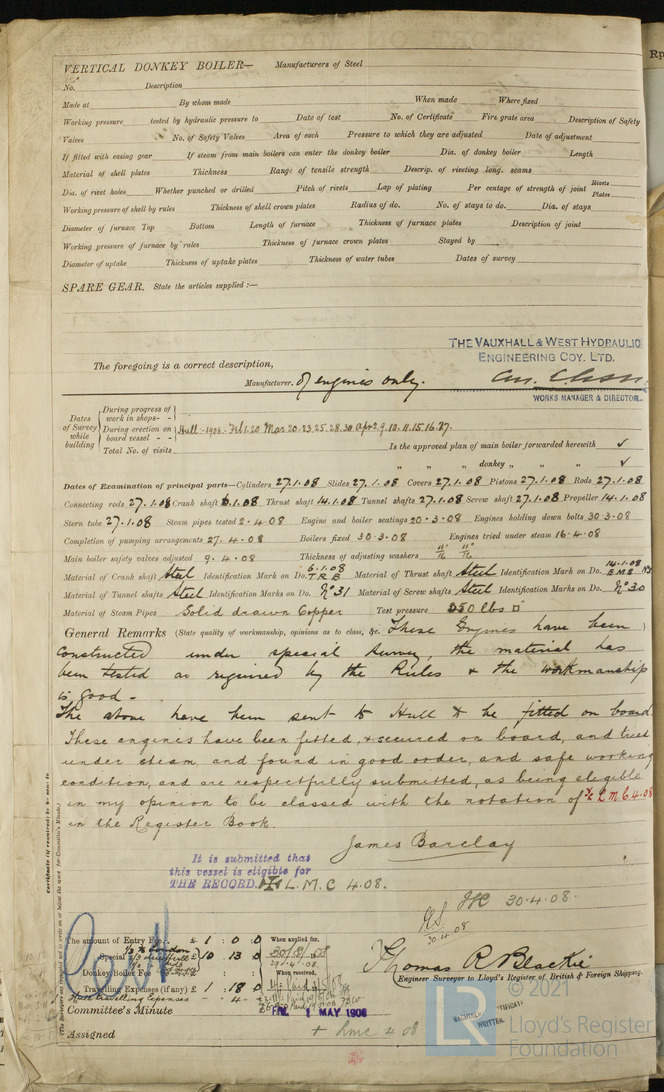 VERTICAL DONKEY BOILER— Manufacturers of Steel
No. Description
Made at By whom made When made Where fixed
Working pressure tested by hydraulic pressure to Date of test No. of Certificate Fire grate area Description of Safety
Valves No. of Safety Valves Area of each Pressure to which they are adjusted Date of adjustment
If fitted with easing gear If steam from main boilers can enter the donkey boiler Dia. of donkey boiler Length
Material of shell plates Thickness Range of tensile strength Descrip. of riveting long. seams
Dia. of rivet holes Whether punched or drilled Pitch of rivets Lap of plating Per centage of strength of joint Rivets Plates
Working pressure of shell by rules Thickness of shell crown plates Radius of do. No. of stays to do. Dia. of stays
Diameter of furnace Top Bottom Length of furnace Thickness of furnace plates Description of joint
Working pressure of furnace by rules Thickness of furnace crown plates Stayed by
Diameter of uptake Thickness of uptake plates Thickness of water tubes Dates of survey
SPARE GEAR. State the articles supplied :—
THE VAUXHALL & WEST HYDRAULIC
ENGINEERING COY. LTD.
The foregoing is a correct description,
Manufacturer. of engines only.
WORKS MANAGER & DIRECTOR.
Dates of Survey while building
During progress of work in shops- -
During erection on board vessel - -
Hull-1908- Feb 1.20 Mar 20.23.25.28.30 Apr 2.9.10.11.15.16.27.
Total No. of visits
Is the approved plan of main boiler forwarded herewith ✓
" " " donkey " " " ✓
Dates of Examination of principal parts—Cylinders 27.1.08 Slides 27.1.08 Covers 27.1.08 Pistons 27.1.08 Rods 27.1.08
Connecting rods 27.1.08 Crank shaft 6.1.08 Thrust shaft 14.1.08 Tunnel shafts 27.1.08 Screw shaft 27.1.08 Propeller 14.1.08
Stern tube 27.1.08 Steam pipes tested 2.4.08 Engine and boiler seatings 20.3.08 Engines holding down bolts 30.3.08
Completion of pumping arrangements 27.4.08 Boilers fixed 30.3.08 Engines tried under steam 16.4.08
Main boiler safety valves adjusted 9.4.08 Thickness of adjusting washers 11/16 11/16
Material of Crank shaft Steel Identification Mark on Do. 6.1.08 T R B Material of Thrust shaft Steel Identification Mark on Do. 14.1.08
Material of Tunnel shafts Steel Identification Marks on Do. No 31 Material of Screw shafts Steel Identification Marks on Do. No 30
Material of Steam Pipes Solid drawn Copper Test pressure lbs □
General Remarks (State quality of workmanship, opinions as to class, &c. These Engines have been
constructed under special survey, the material has
been tested as required by the Rules & the workmanship
is good.
The above have been sent to Hull to be fitted on board.
These engines have been fitted, & secured on board, and tried
under steam, and found in good order, and safe working
condition, and are respectfully submitted, as being eligible
in my opinion to be classed with the notation of L M C 4.08
in the Register Book.
James Barclay
It is submitted that
this vessel is eligible for
THE RECORD. L.M.C 4.08.
30.4.08.
30.4.08
The amount of Entry Fee £ 1 : 0 : 0 When applied for.
Special £ 10 : 13 : 0
Donkey Boiler Fee When received,
Travelling Expenses (if any) £ 1 : 18 : 0
Hull travelling Expenses - 4 -
Thomas R Blackie
Engineer Surveyor to Lloyd's Register of British & Foreign Shipping.
Committee's Minute FRI. 1 MAY 1908
Assigned + Lmc 4 08
WRITTEN
© 2021
Lloyd's Register
Foundation
LR